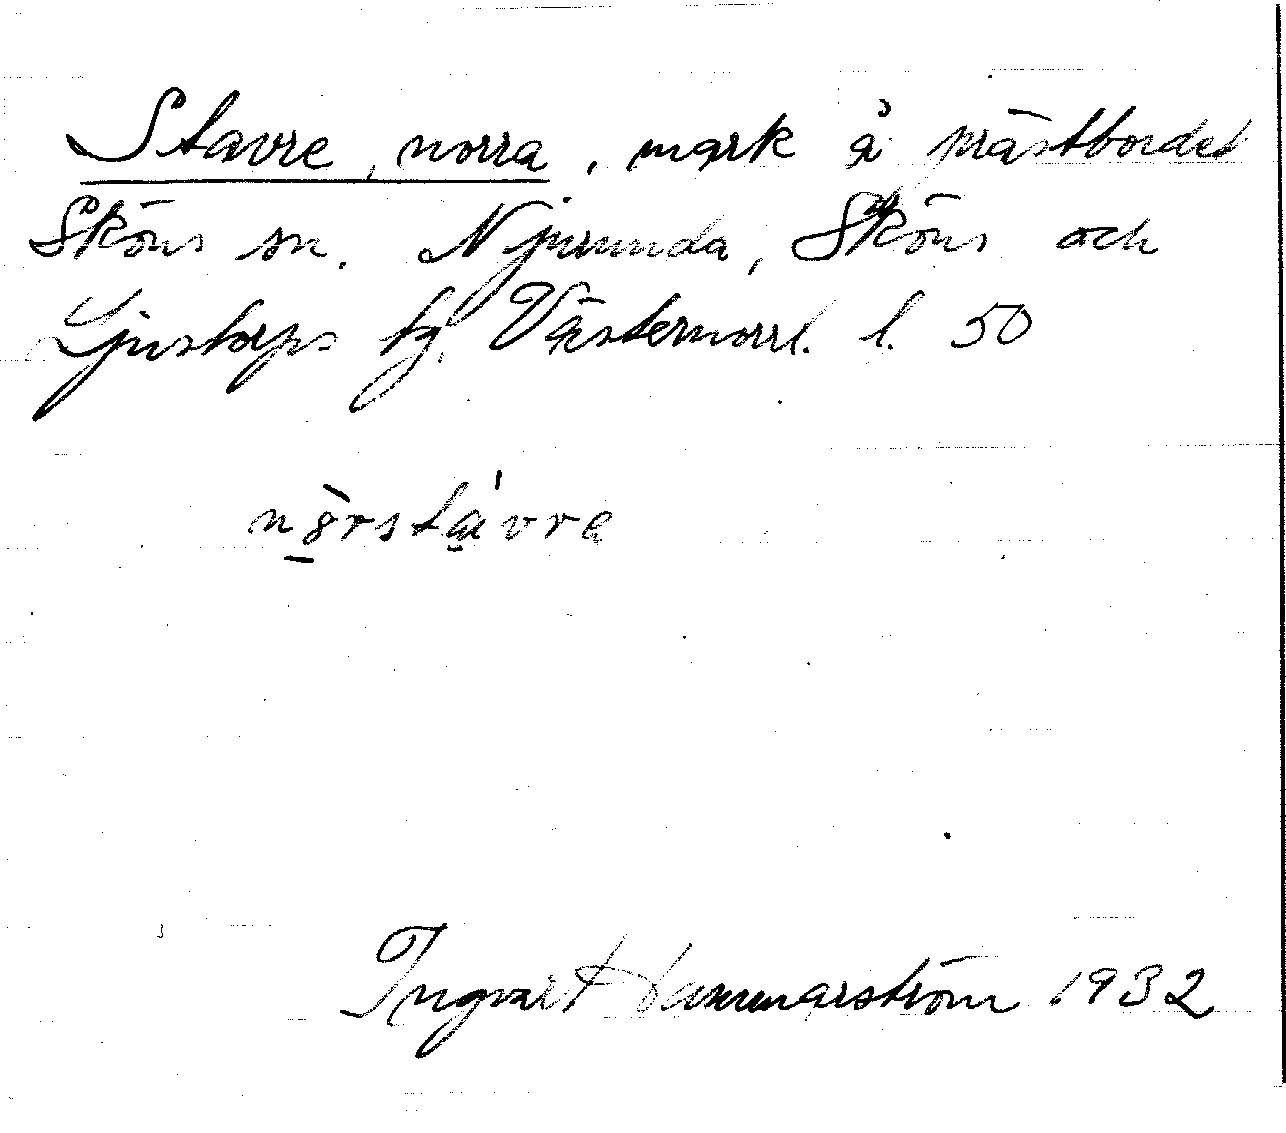 Stavre, norra, mark å prästbordet
Sköns sn. Njurunda, Sköns och
Ljustorps tg, Västernorrl. l. 50
nò̱rstá̱vre
Ingvart Hammarström 1932